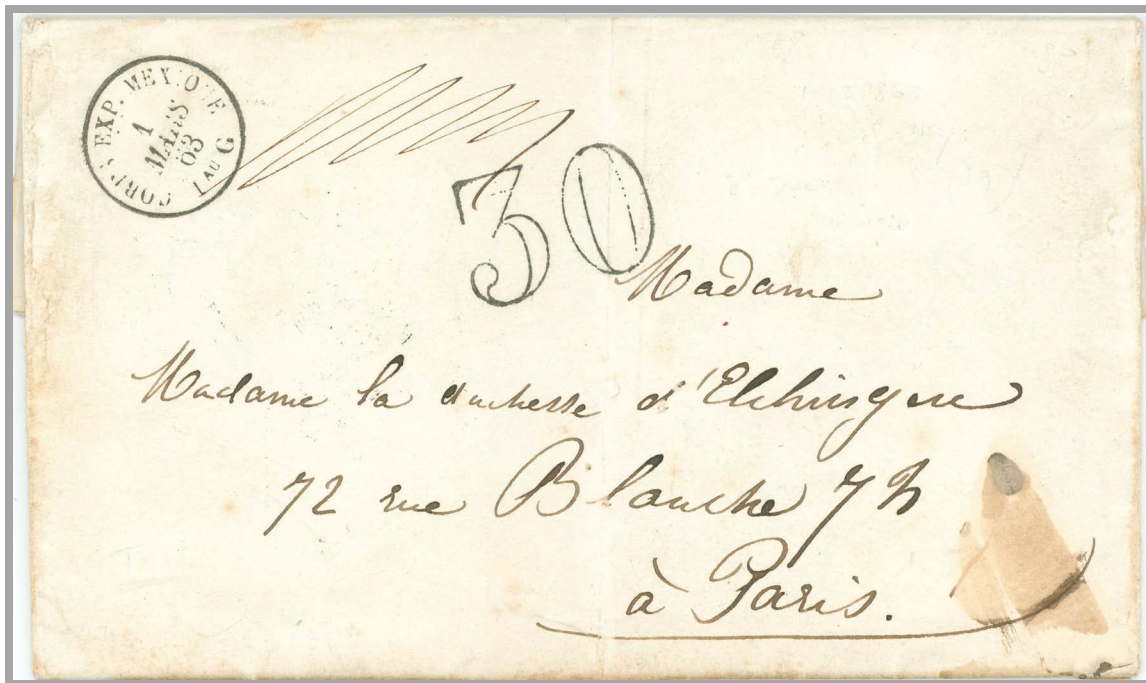 CORPS EXP. MEXIQUE
1
MARS
63
Bau G
30
Madame
Madame la duchesse d'Elchingen
72 rue Blanche 72
à Paris.